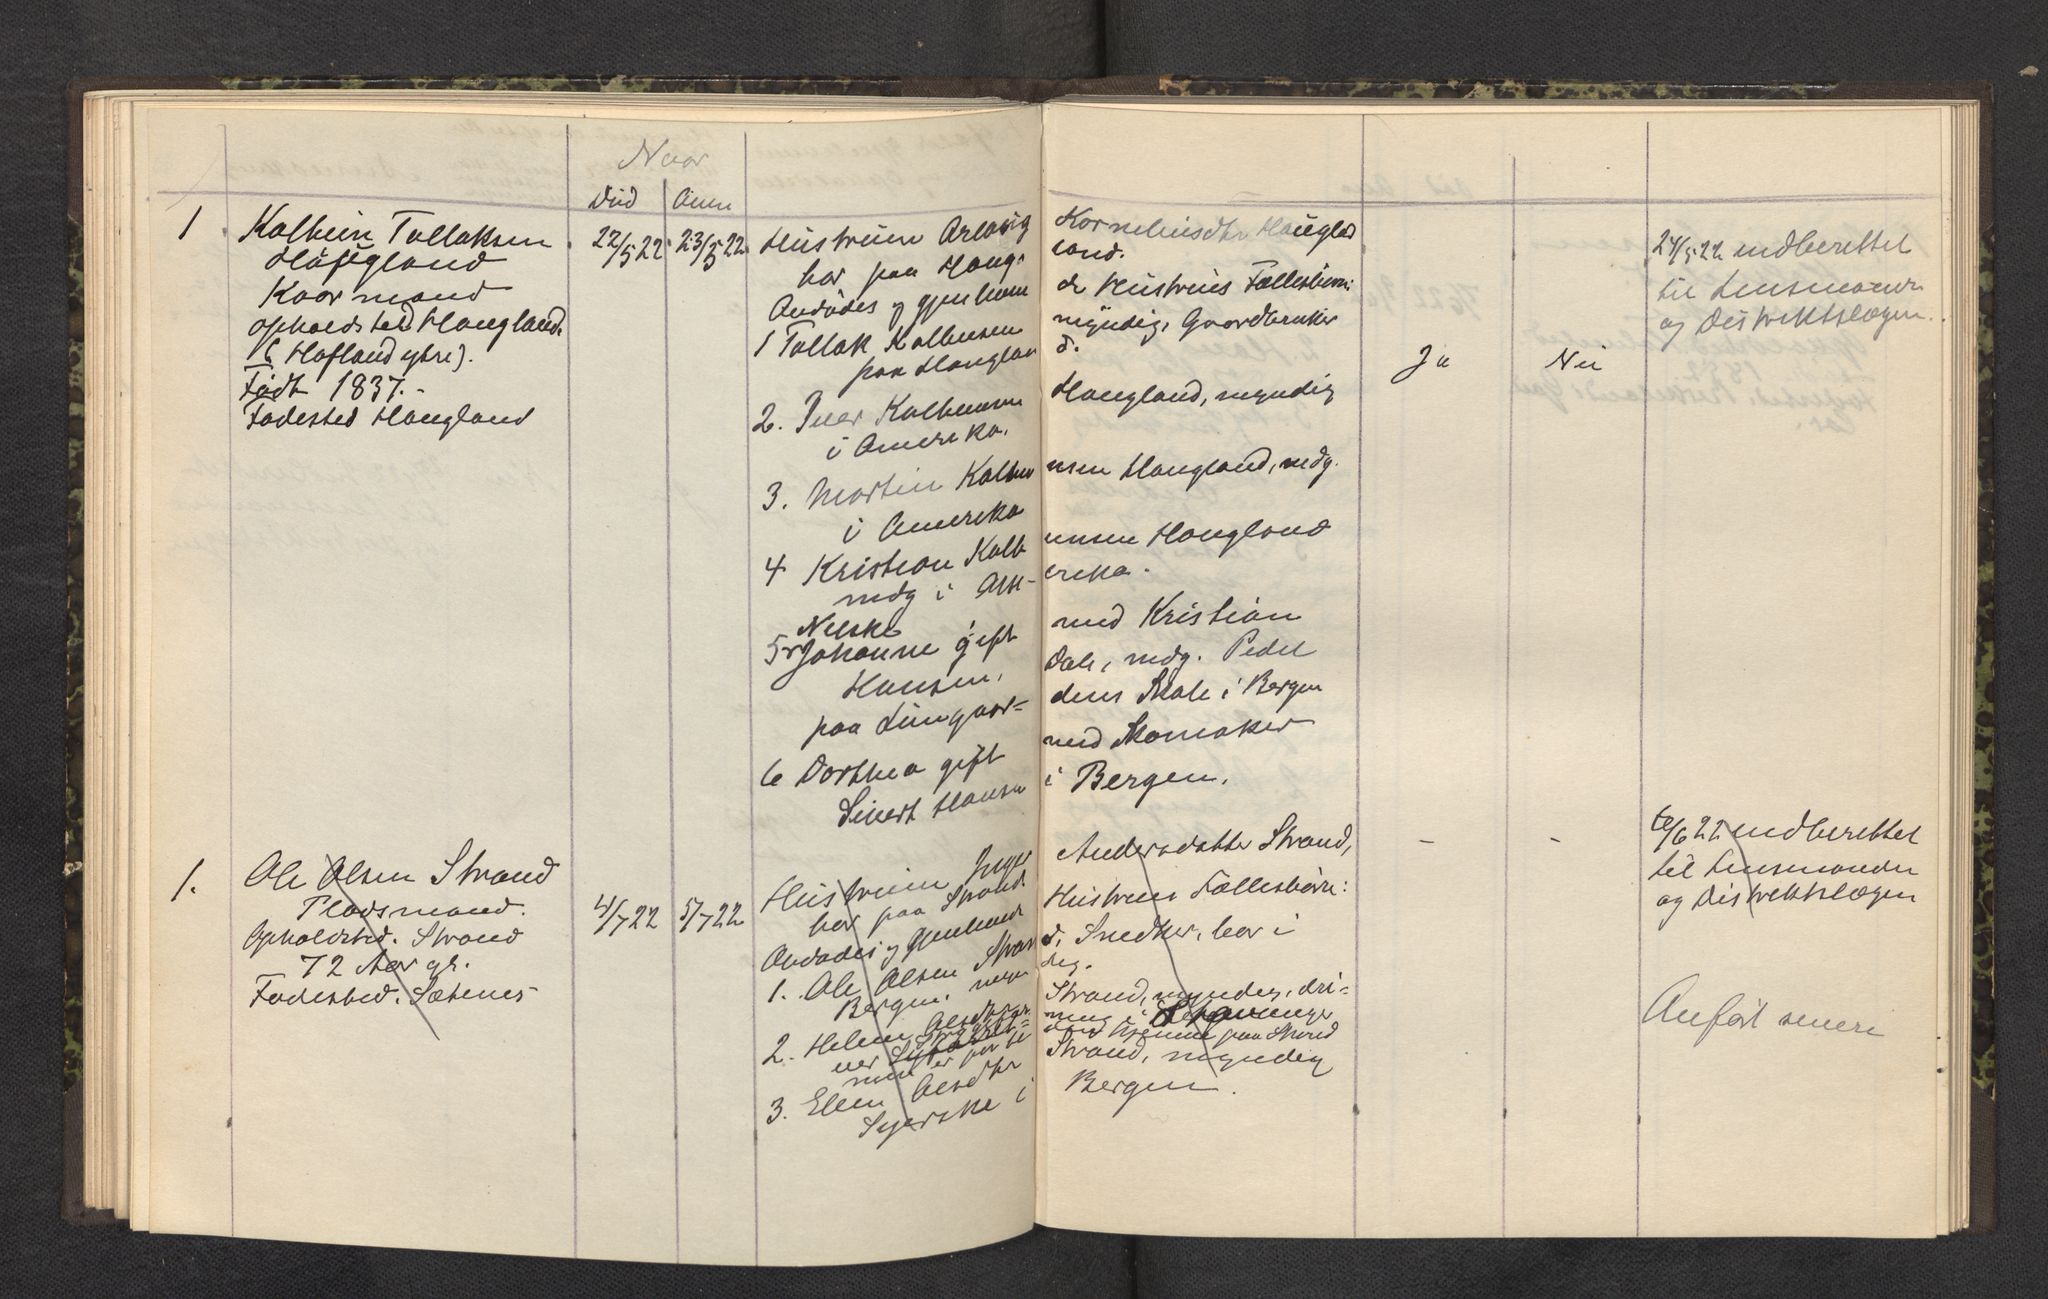 Naar
Død Anm
1 Kolbein Tollaksen 22/5 22 23/5 22 Hustruen Kornelius dtr Haugland
Haugland bor paa Haugland.
Kaarmand Avdødes og gjenlevende Hustrues Fællesbørn:
opholdsted Haugland 1 Tollak Kolbensen myndig, Gaardbruker
(Hofland ytre). paa Haugland.
Født 1837.-
Fødested Haugland 2. Iver Kolbensen Haugland, myndig
i Amerika.
3. Martin Kolbensen Haugland, mdg.
i Amerika
4 Kristian Kolbensen Haugland
mdg i Amerika.
5 Johanne gift med Kristian
Hansen, Dale, mdg. Pedel
paa Lungaardens Skole i Bergen
6 Dorthea gift med Skomaker
Sivert Hansen i Bergen.
Ja Nei
24/5 22 indberettet
til Lensmanden
og Distriktslægen.
1. Ole Olsen Strand 4/7 22 5/7 22 Hustruen Inger Andersdatter Strand,
Pladsmand. bor paa Strand
Opholdsted. Strand Avdødes og gjenlevende Hustrues Fællesbørn:
72 Aar gl. 1. Ole Olsen Strand, Snedker, bor i
Fødested. Sætenes Bergen, myndig.
2. Helene Olsdtr Strand, myndig, dri-
ver
hjemme paa Strand
3. Ellen Olsdtr Strand, myndig
Syerske i Bergen.
- -
6/6 22 indberettet
til Lensmanden
og Distriktslægen
Anført senere